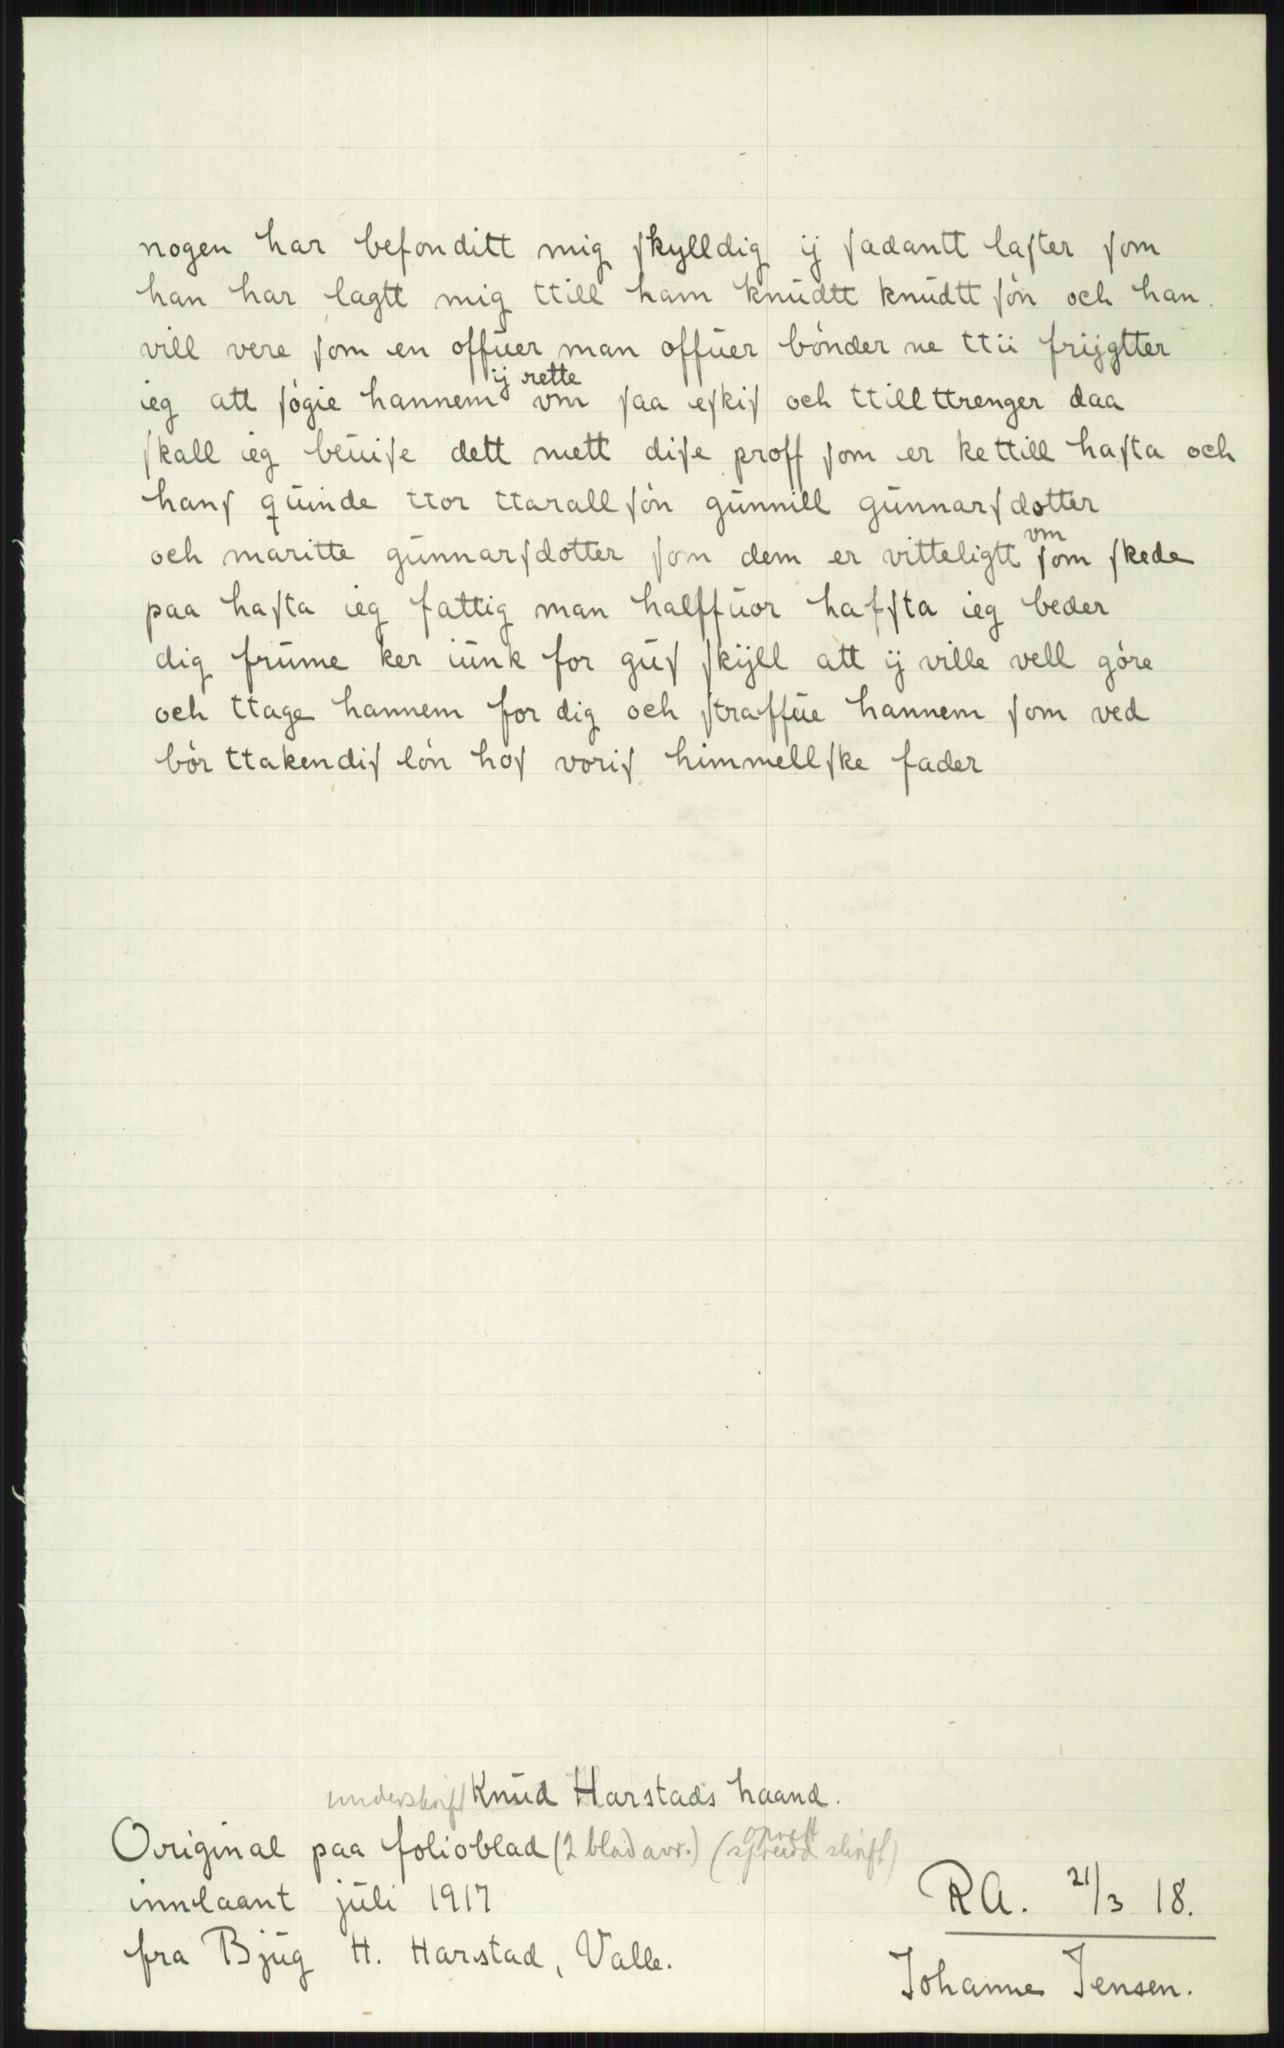 nogen har befonditt mig ſkylldig ij ſadantt laſter ſom
han har lagtt mig ttill ham knüdtt knüdtt ſón och han
vill vere ſom en offüer man offüer bónder ne ttii frijgtter
ieg att ſógie hannem ij rette vm ſaa eſkiſ och ttillttrenger daa
ſkall ieg beüiſe dett mett diſe proff ſom er kettill haſta och
hanſ qüinde ttor ttarallſón günnill günnarſdotter
och maritte günnarſdotter ſom dem er vitteligtt vm ſom ſkede
paa haſta ieg fattig man halffüor hafſta ieg beder
dig früme ker iünk for güſ ſkÿll att ij ville vell góre
och ttage hannem for dig och ſtraffüe hannem ſom ved
bór ttakendiſ lón hoſ voriſ himmellſke fader
underskrift Knüd Harstads haand.
Original paa folioblad (2 blad avr.) ( skrift)
innlaant jüli 1917
fra Bjüg H. Harstad, Valle.
RA. 21/3 18.
Johanne Jensen.